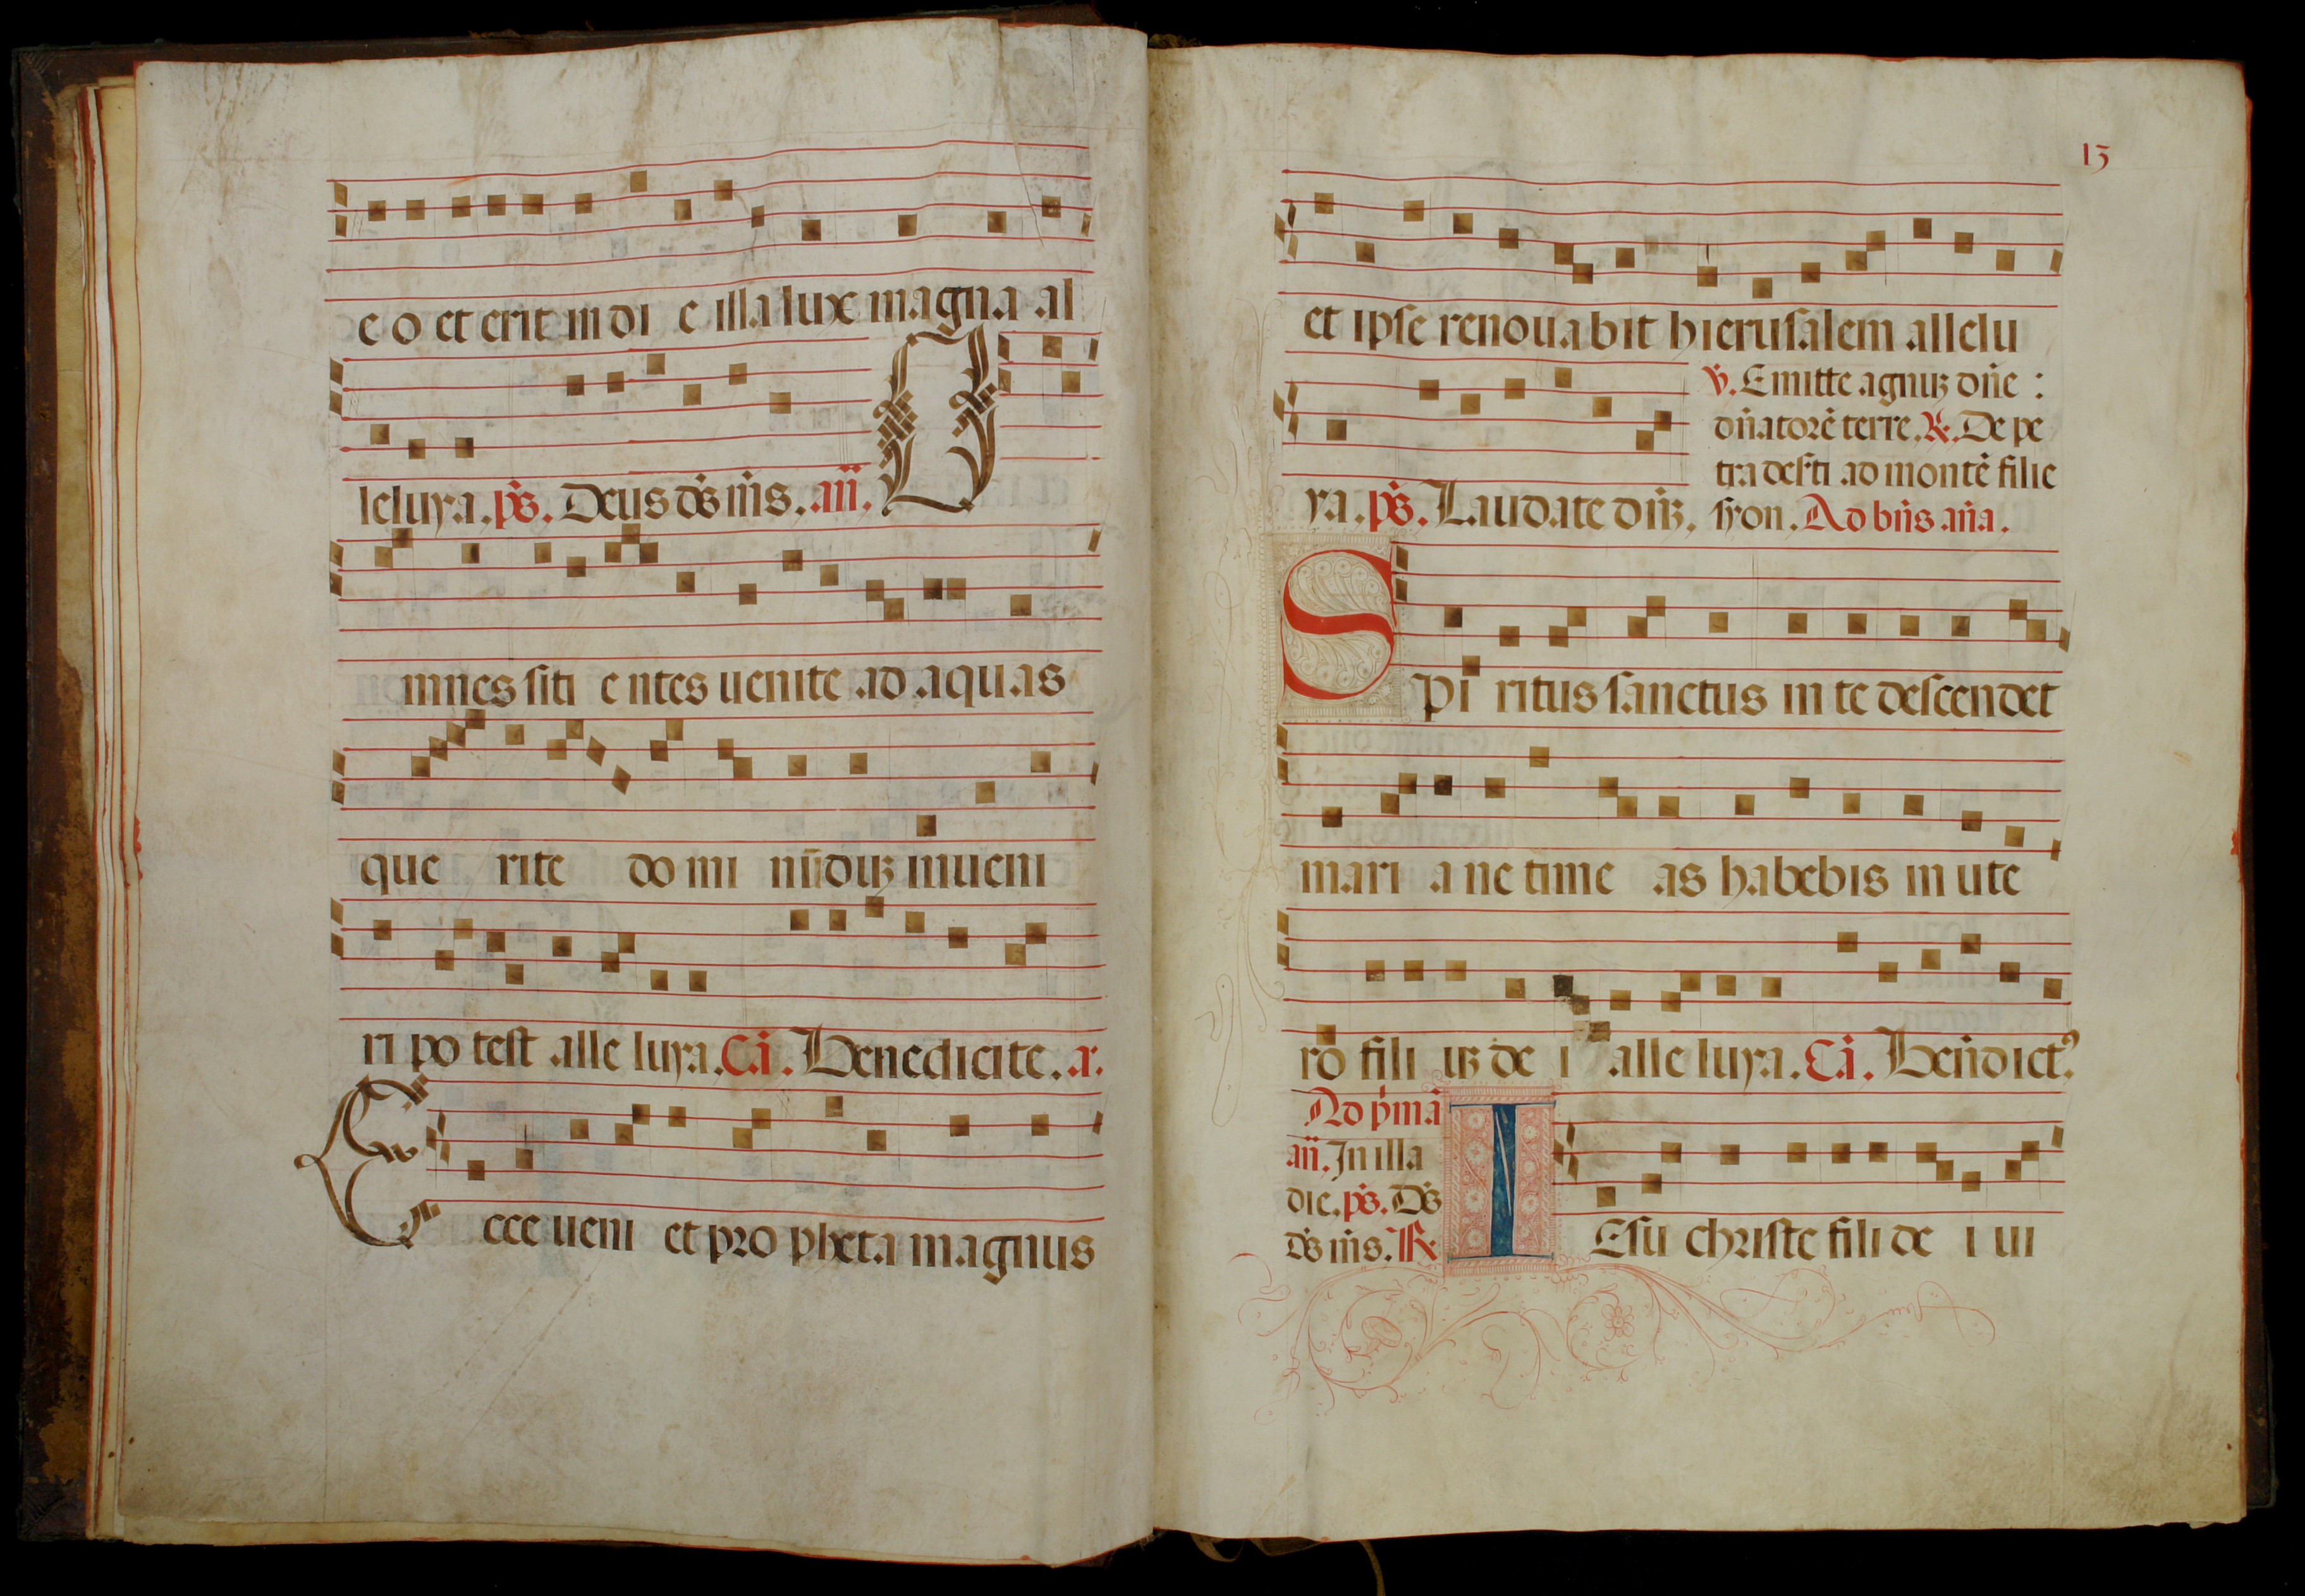 e o et erit in di e illa lux magna al
leluya. ps. Deus ds ms. añ. O
mnes siti e ntes uenite ad aquas
que rite do mi nũ duꝫ inueni
ri po test alle luya. Cã. Benedicite. a.
Ecce ueni et pro pheta magnus
13
et ipse renouabit hierusalem allelu
ya. ps. Laudate dñꝫ.
℣. Emitte agnuꝫ dñe :
dñatorẽ terre. ℟. De pe
tra desti ad montẽ filie
syon. Ad bñs aña.
Spi ritus sanctus in te descendet
mari a ne time as habebis in ute
ro fili uꝫ de i alle luya. Cã. Benedictꝰ.
Ad pmã
añ. In illa
die. ps. Ds
ds ms. ℟
IEsu christe fili de i ui